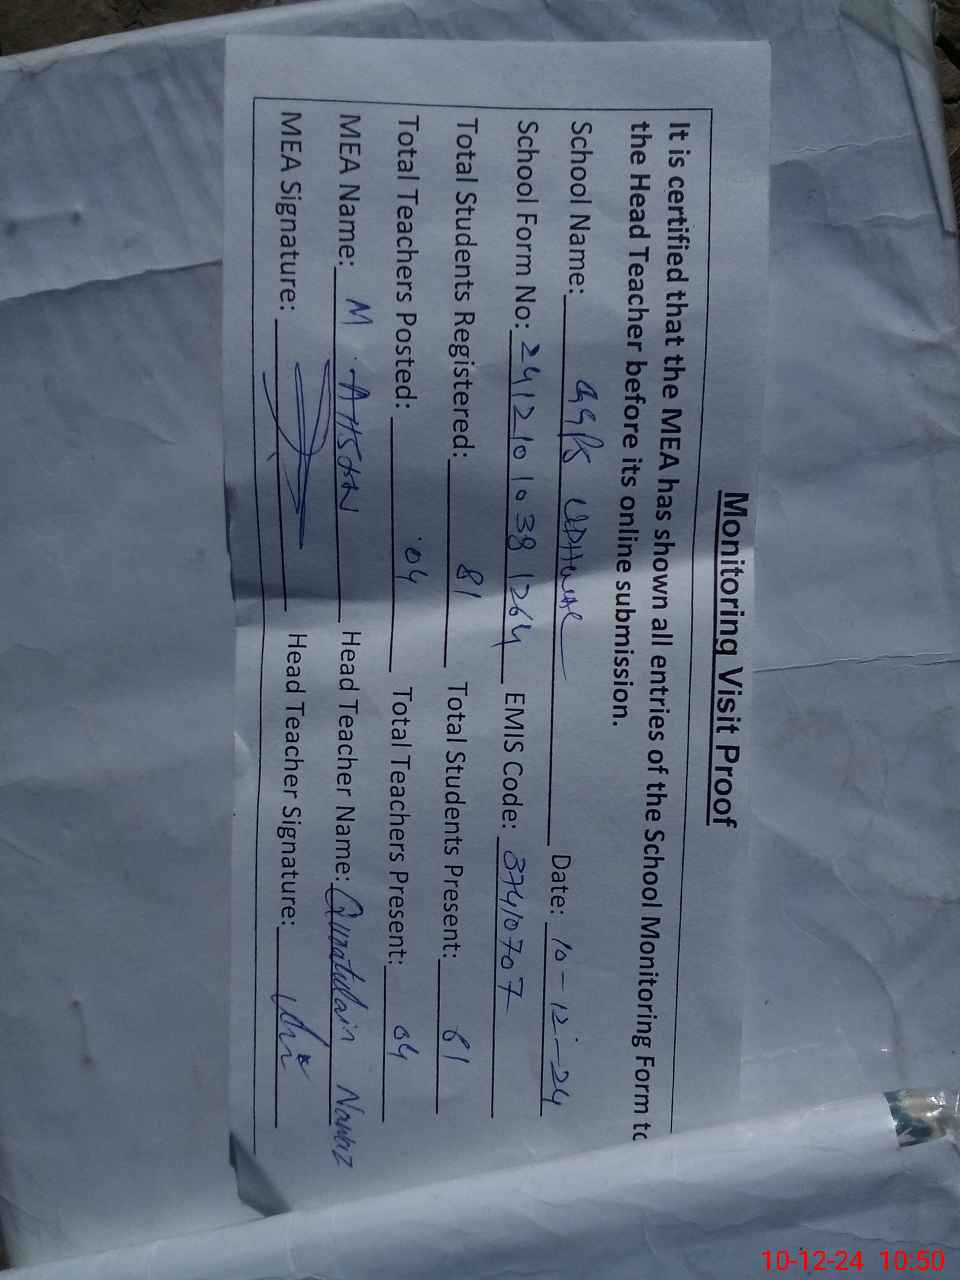 Monitoring Visit Proof
It is certified that the MEA has shown all entries of the School Monitoring Form to
the Head Teacher before its online submission.
School Name: GGPS Date: 10-12-24
School Form No: 24121010381264 EMIS Code: 37410707
Total Students Registered: 81 Total Students Present: 61
Total Teachers Posted: 04 Total Teachers Present: 04
MEA Name: M. AHSAN Head Teacher Name: Quratulain Nawaz
MEA Signature: Head Teacher Signature:
10-12-24 10:50